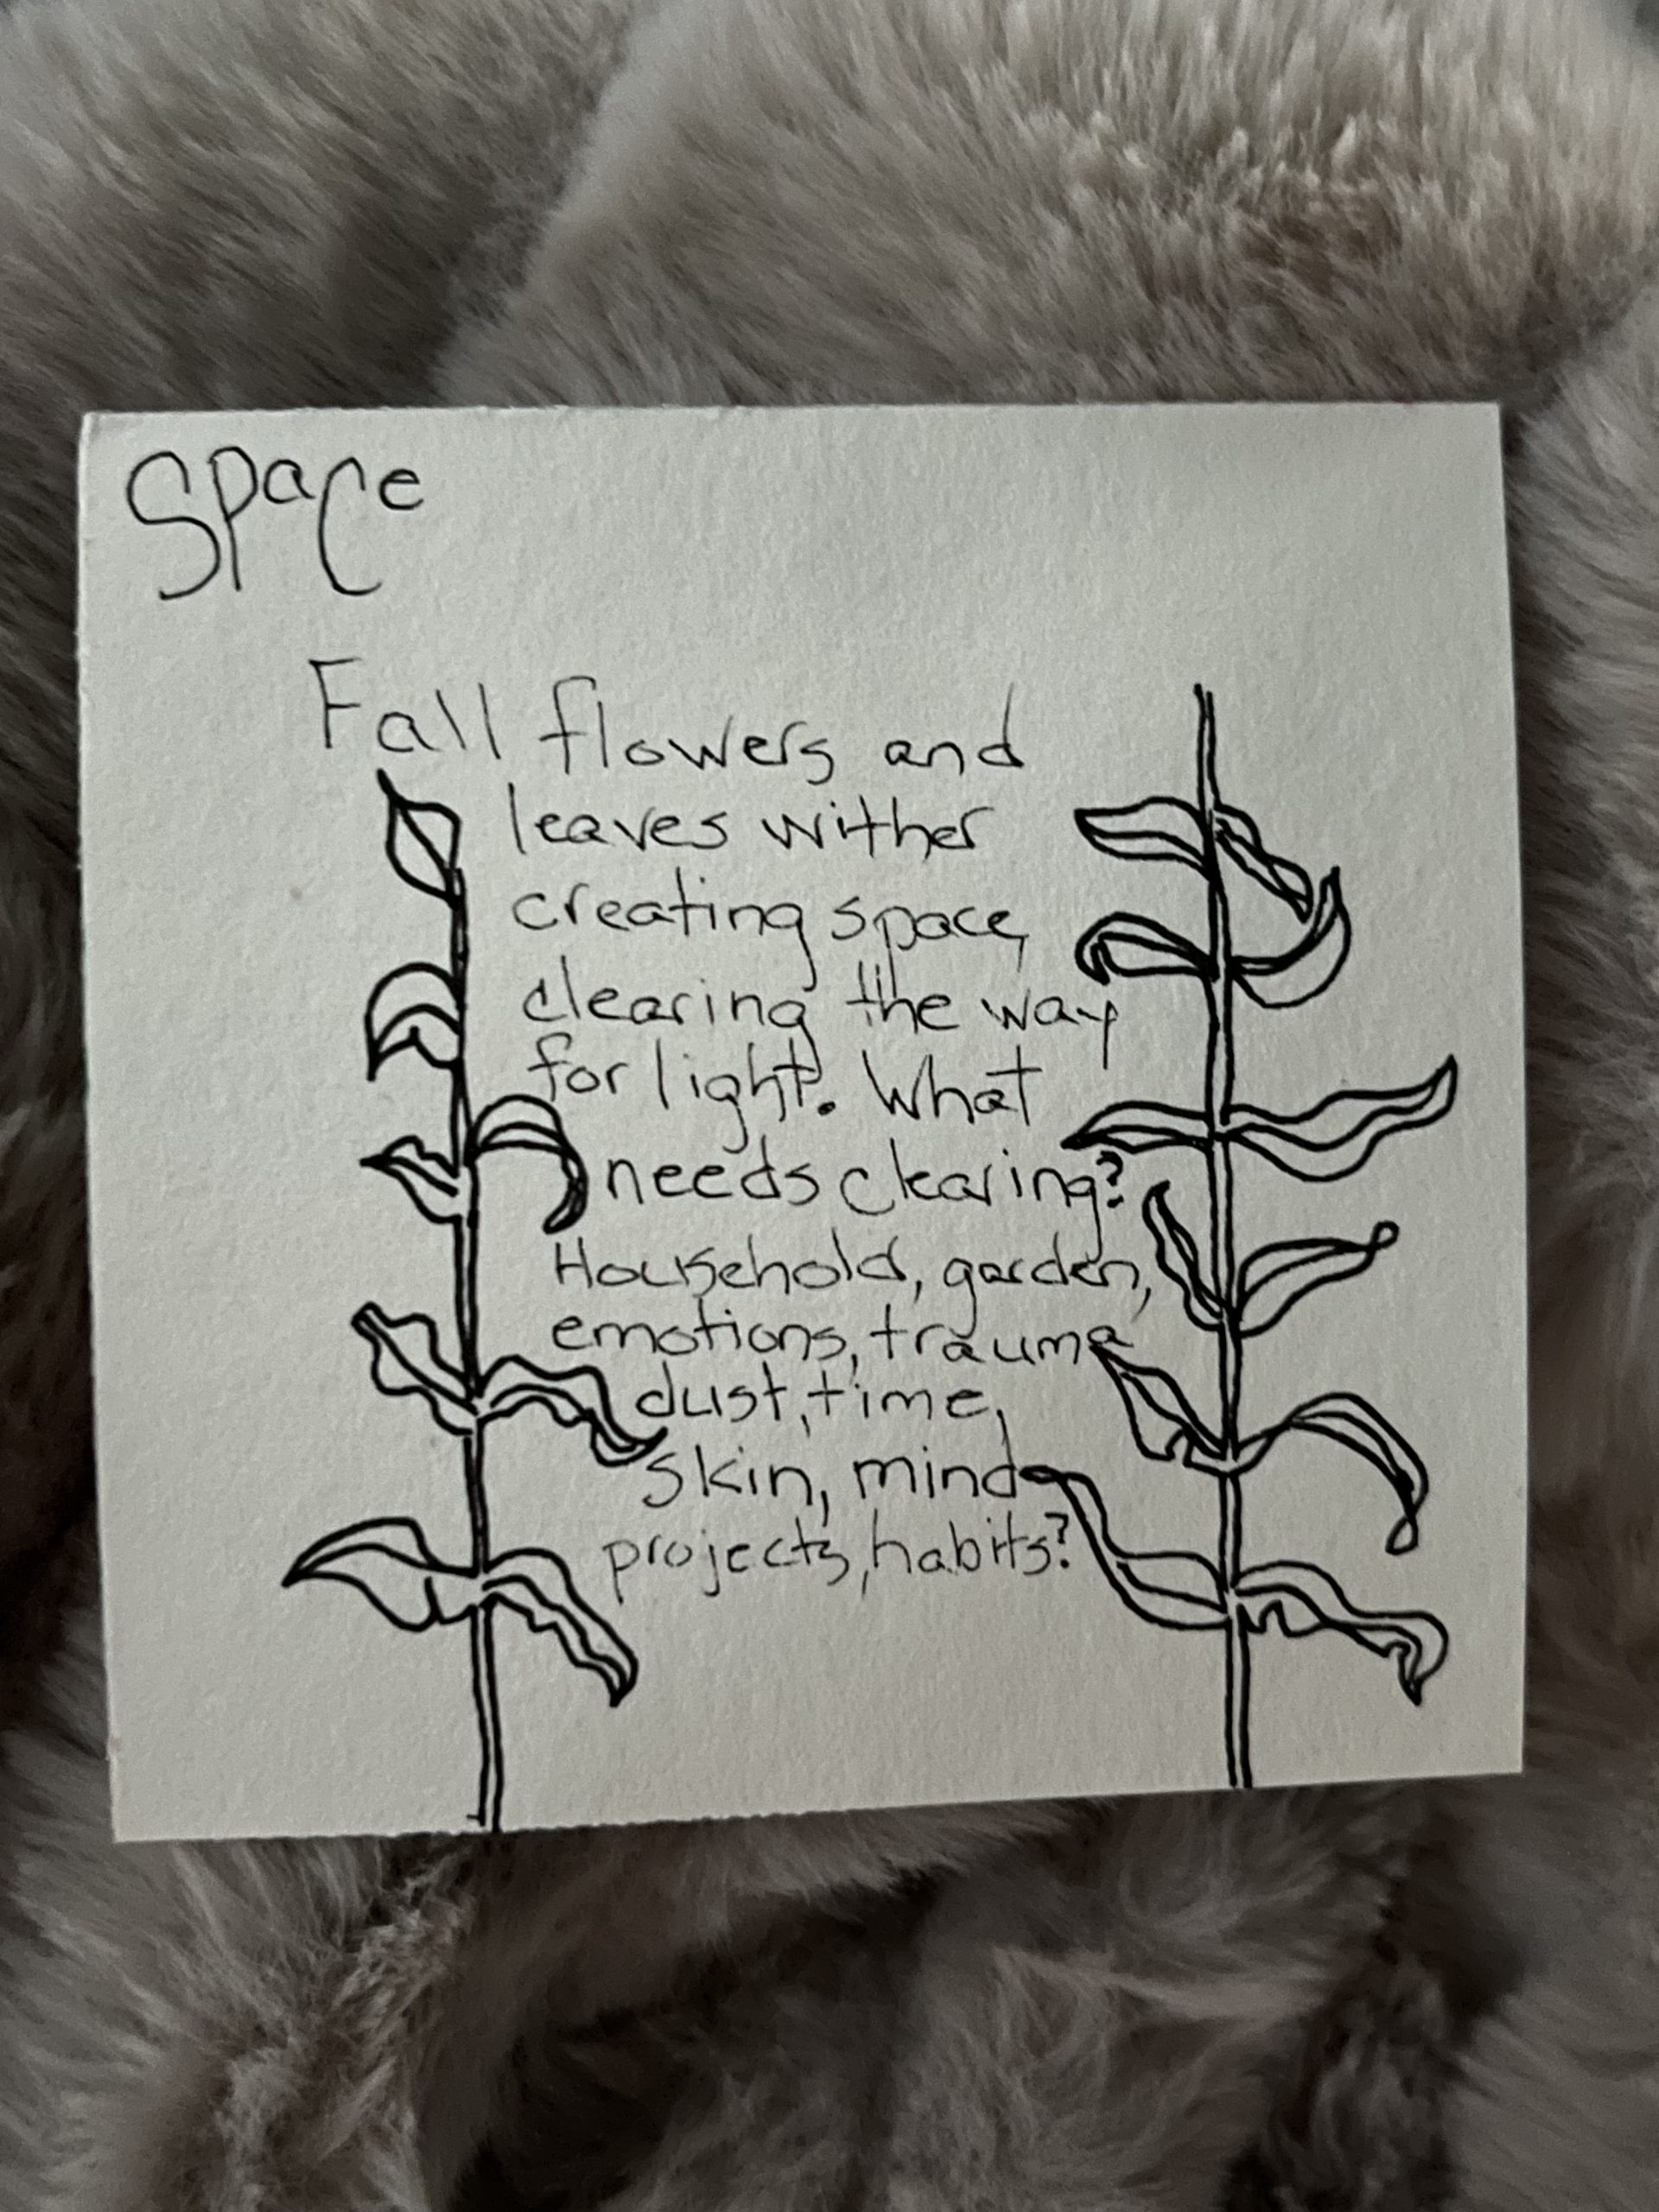 Space
Fall flowers and
leaves wither
creating space,
clearing the way
for light. What
needs clearing?
Household, garden,
emotions, trauma
dust, time,
skin, mind
projects, habits?